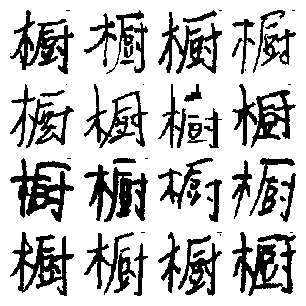 橱橱橱橱
橱橱橱橱
橱橱橱橱
橱橱橱橱